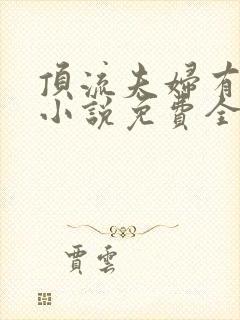 頂流夫婦有
小說免費全
賈雲